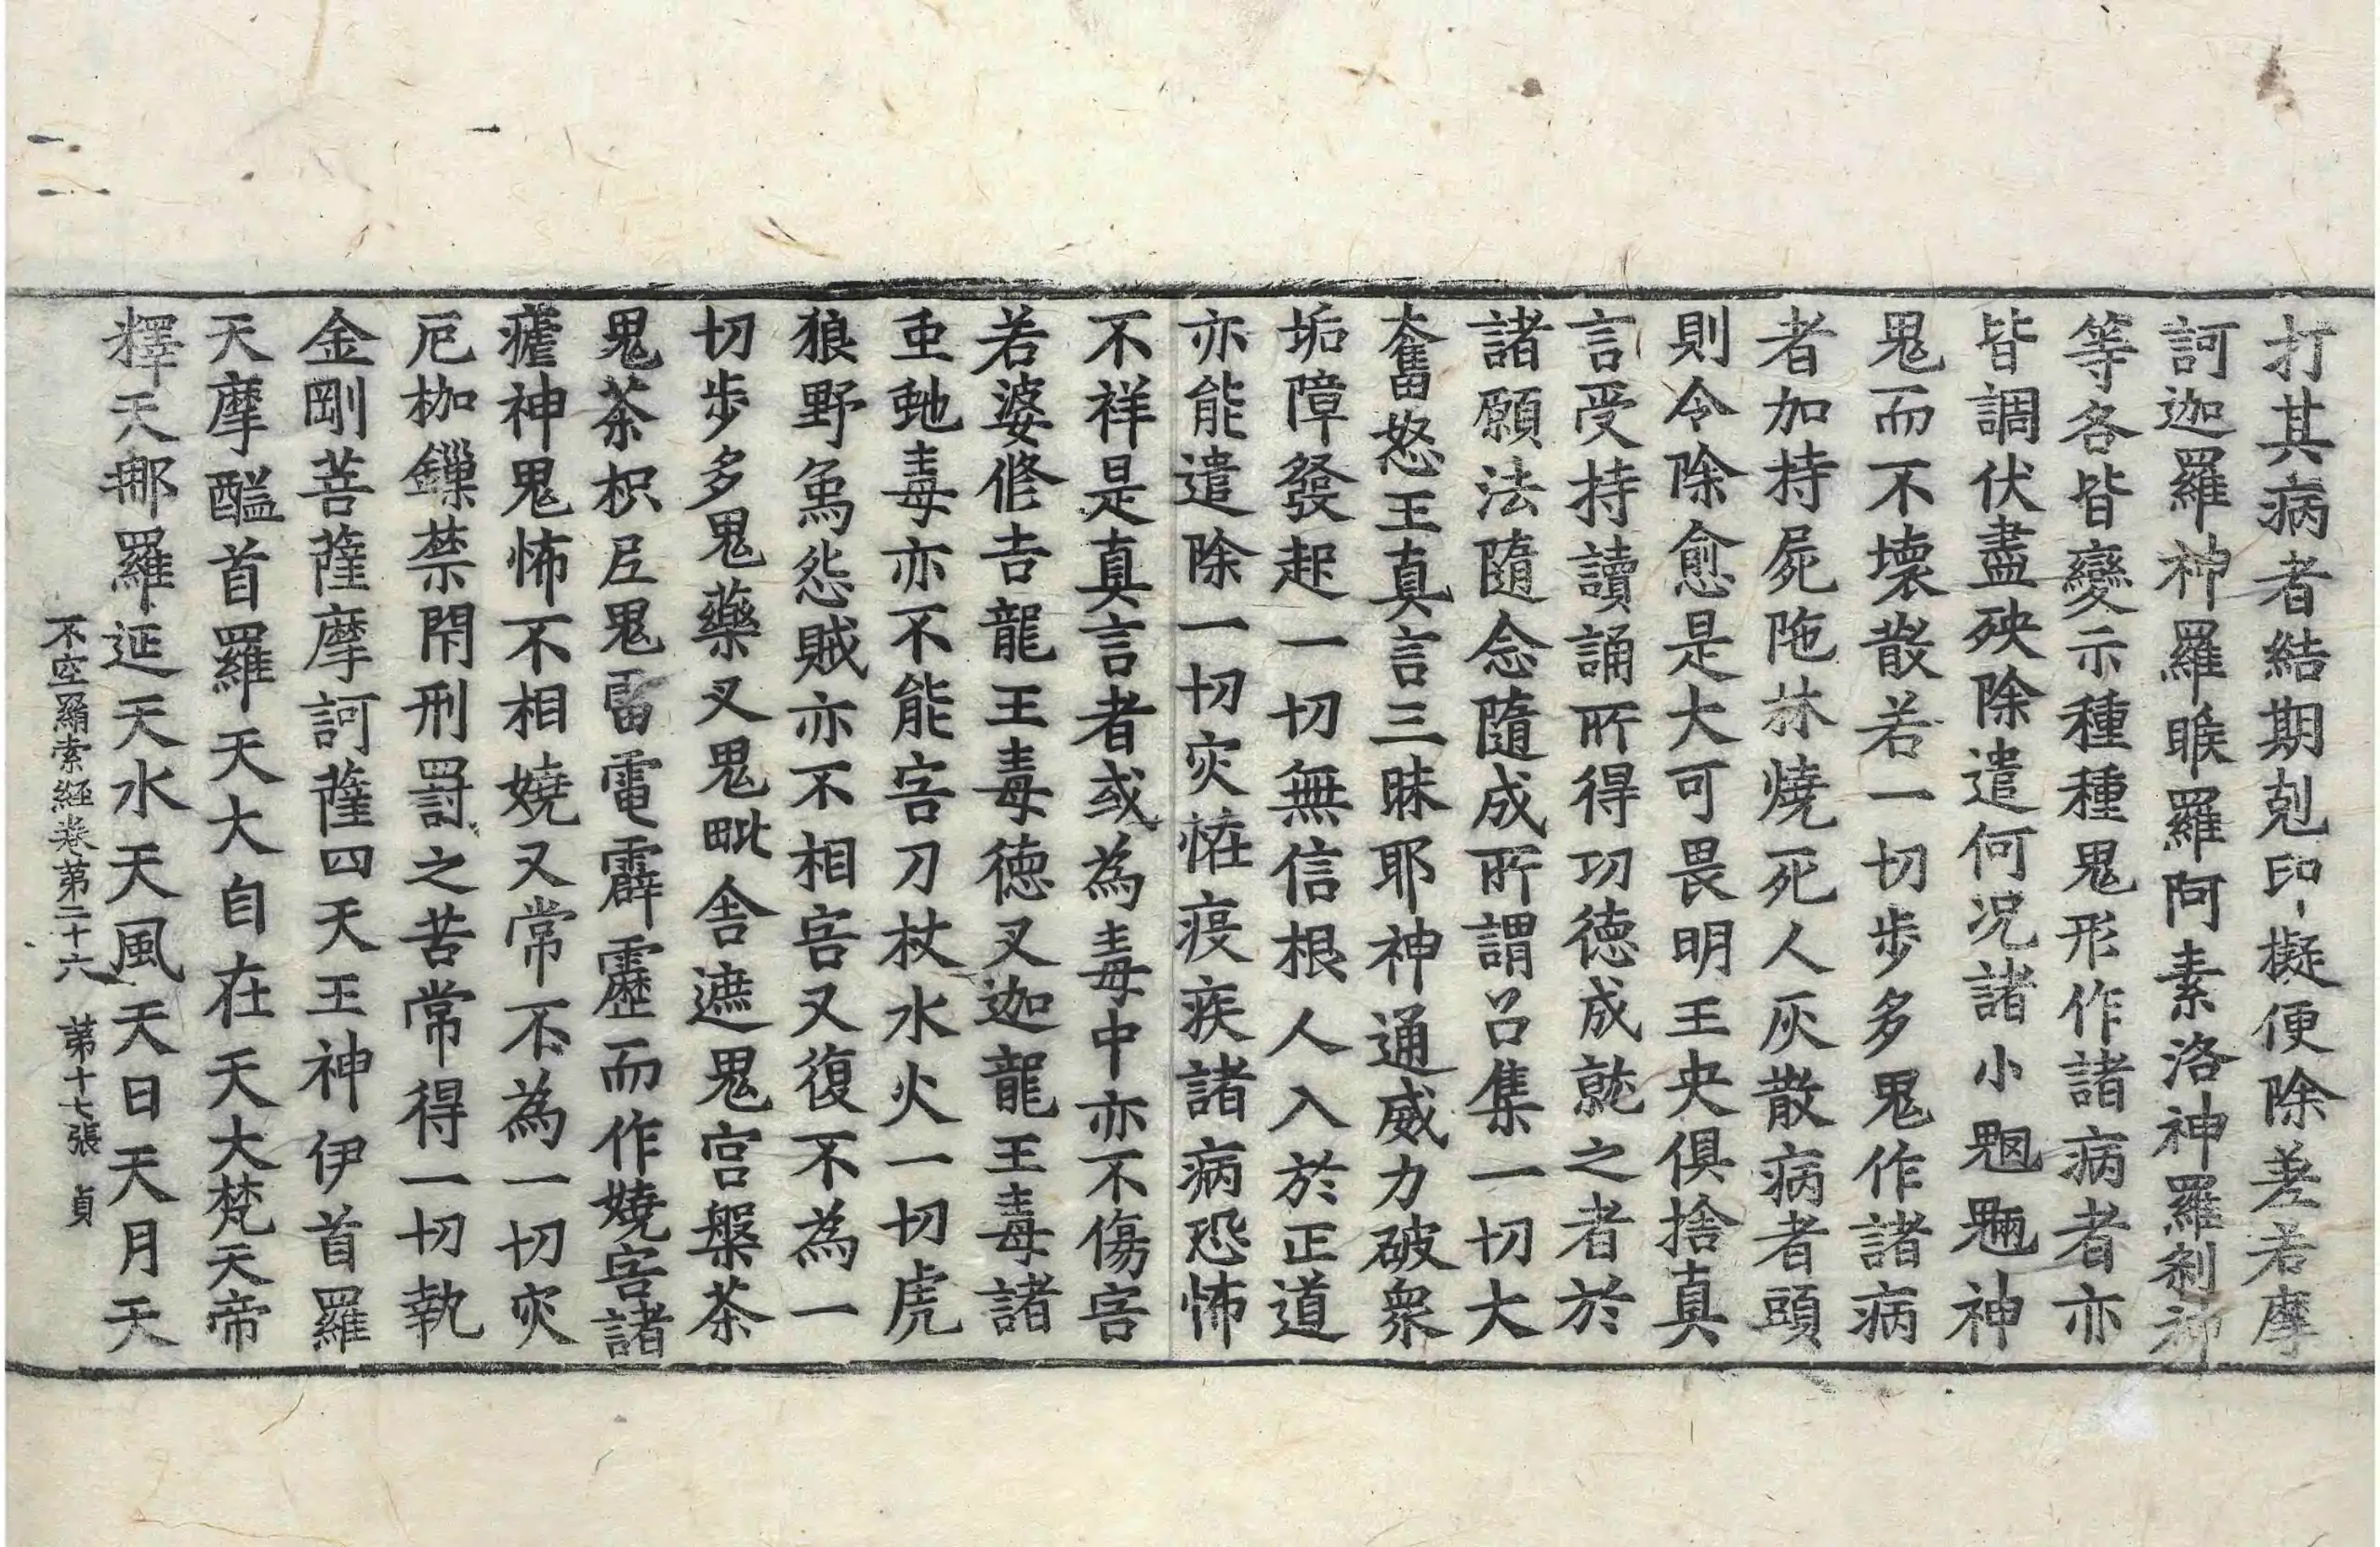 打其病者結期剋印擬便除差若摩
訶迦羅神羅睺羅阿素洛神羅剎神
等各皆變示種種鬼形作諸病者亦
皆調伏盡殃除遣何況諸小魍魎神
鬼而不壞散若一切步多鬼作諸病
者加持屍陁林燒死人灰散病者頭
則令除愈是大可畏明王央俱捨真
言受持讀誦所得功德成就之者於
諸願法隨念隨成所謂召集一切大
奮怒王真言三昧耶神通威力破眾
垢障發起一切無信根人入於正道
亦能遣除一切灾恠疫疾諸病恐怖
不祥是真言者或為毒中亦不傷害
若婆修吉龍王毒德叉迦龍王毒諸
虫虵毒亦不能害刀杖水火一切虎
狼野𤉢怨賊亦不相害又復不為一
切步多鬼藥叉鬼毗舍遮鬼宮槃茶
鬼茶枳𡰱鬼雷電霹靂而作嬈害諸
瘧神鬼怖不相嬈又常不為一切灾
厄枷鏁禁閇刑罰之苦常得一切執
金剛菩薩摩訶薩四天王神伊首羅
天摩醯首羅天大自在天大梵天帝
釋天那羅延天水天風天日天月天
不空羂索經卷第二十六　第十七張　貞